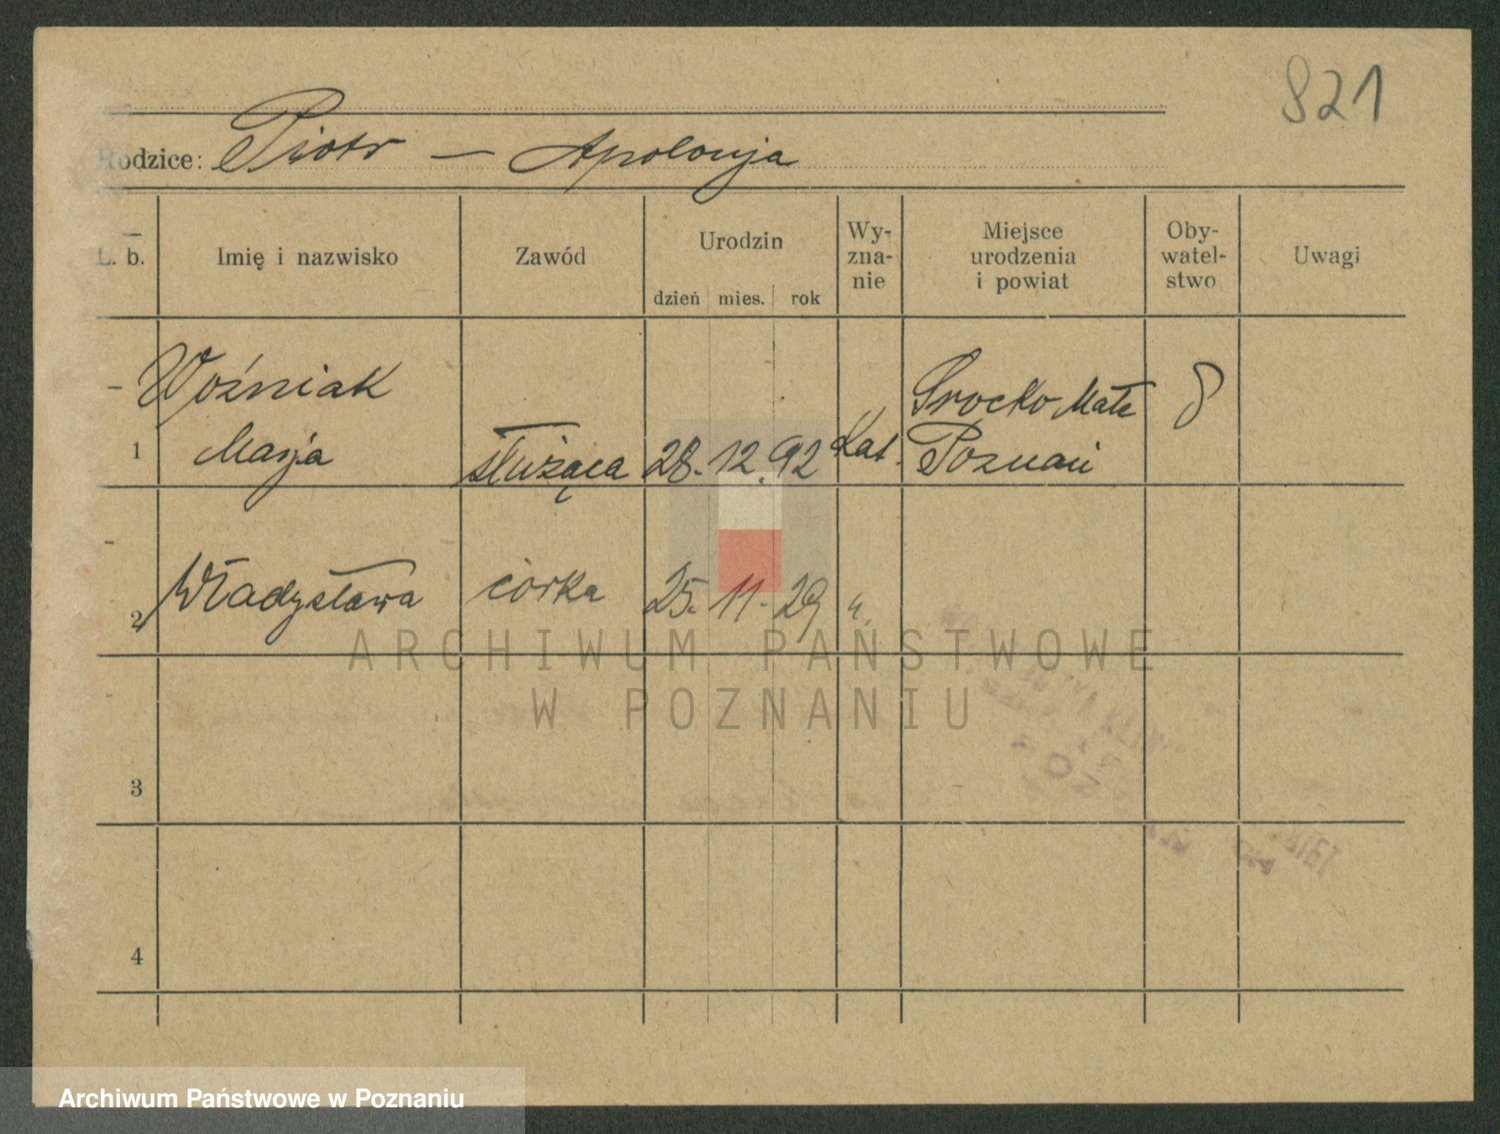 821
Rodzice: Piotr — Apolonja
L. b.
Imię i nazwisko
Zawód
Urodzin
dzień mies. rok
Wy-
zna-
nie
Miejsce
urodzenia
i powiat
Oby-
watel-
stwo
Uwagi
Woźniak
1 Marja służąca 28. 12. 92 Kat. Srocko Małe
Poznań
2 Władysława córka 25. 11. 29 "
ARCHIWUM PAŃSTWOWE
W POZNANIU
3
4
Archiwum Państwowe w Poznaniu